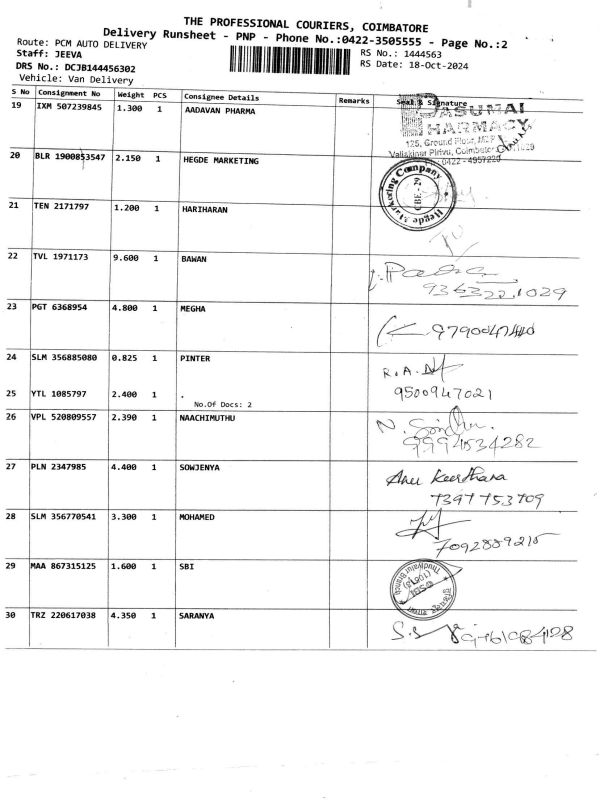 THE PROFESSIONAL COURIERS, COIMBATORE
Delivery Runsheet - PNP - Phone No.:0422-3505555 - Page No.:2
Route: PCM AUTO DELIVERY
RS No.: 1444563
Staff: JEEVA
RS Date: 18-Oct-2024
DRS No.: DCJB144456302
Vehicle: Van Delivery
S No Consignment No Weight PCS Consignee Details Remarks Seal & Signature
19 IXM 507239845 1.300 1 AADAVAN PHARMA
PASUMAI
PHARMACY
125, Ground Floor,
Coimbatore
0422 - 4957220
20 BLR 1900853547 2.150 1 HEGDE MARKETING
Hegde Marketing Company
CBE - 29
21 TEN 2171797 1.200 1 HARIHARAN
22 TVL 1971173 9.600 1 BAWAN
9363221029
23 PGT 6368954 4.800 1 MEGHA
24 SLM 356885080 0.825 1 PINTER
R.A.
9500947021
25 YTL 1085797 2.400 1 .
No.Of Docs: 2
26 VPL 520809557 2.390 1 NAACHIMUTHU
N. Sindhu.
9994534282
27 PLN 2347985 4.400 1 SOWJENYA
Anu Keerthana
7397753709
28 SLM 356770541 3.300 1 MOHAMED
7092889215
29 MAA 867315125 1.600 1 SBI
SBI
30 TRZ 220617038 4.350 1 SARANYA
S.S